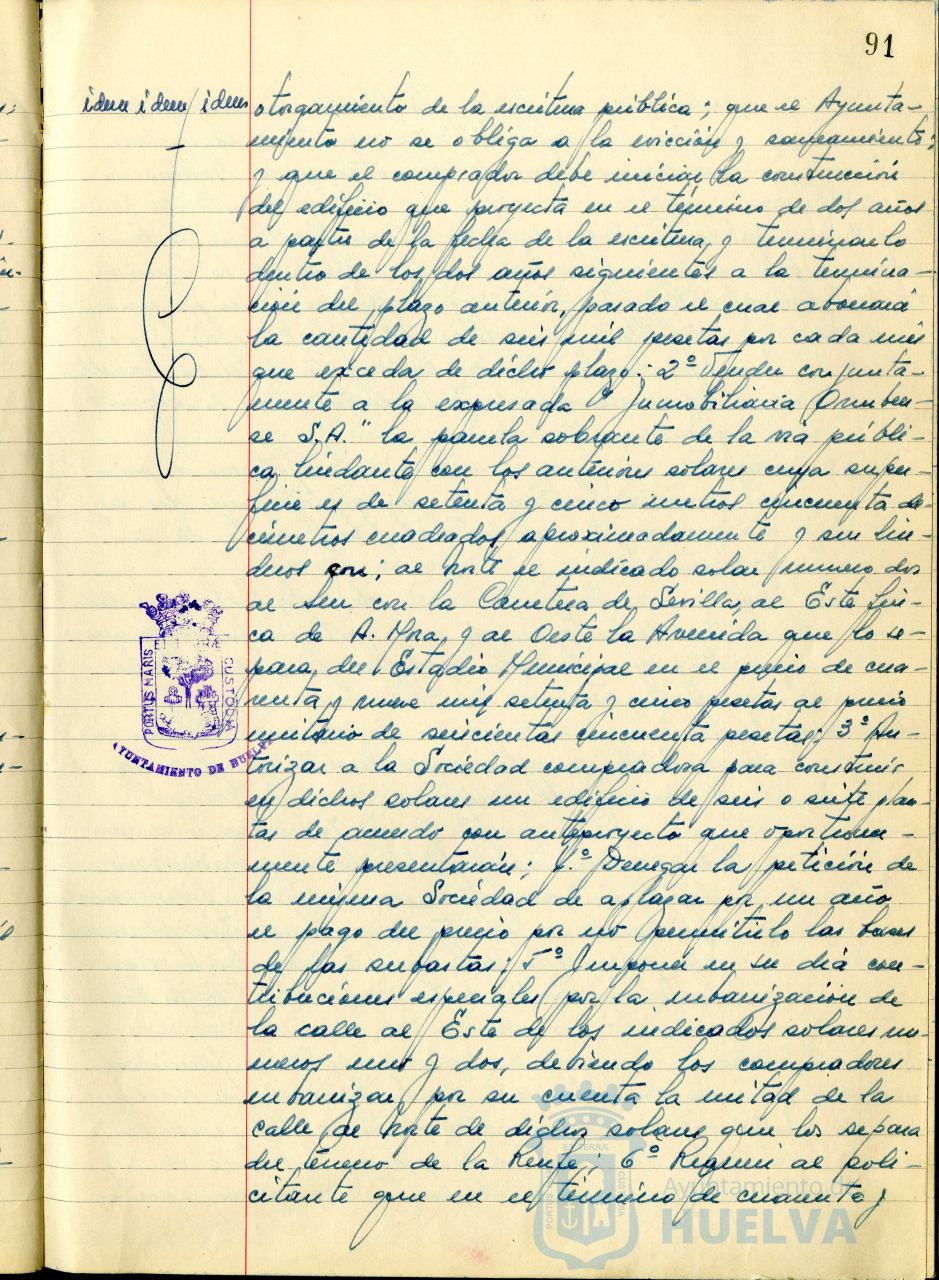 91
idem idem / idem
otorgamiento de la escritura pública; que el Ayunta-
miento no se obliga a la evicción y saneamiento;
y que el comprador debe iniciar la construcción
del edificio que proyecta en el término de dos años
a partir de la fecha de la escritura, y terminarlo
dentro de los dos años siguientes a la termina-
ción del plazo anterior, pasado el cual abonará
la cantidad de seis mil pesetas por cada mes
que exceda de dicho plazo: 2º Vender conjunta-
mente a la expresada "Inmobiliaria Onuben-
se S.A." la parcela sobrante de la vía públi-
ca, lindante con los anteriores solares cuya super-
ficie es de setenta y cinco metros cincuenta de-
címetros cuadrados, aproximadamente y sus lin-
deros son; al Norte el indicado solar numero dos
al Sur con la Carretera de Sevilla, al Este fin-
ca de A. Mora, y al Oeste la Avenida que lo se-
para del Estadio Municipal en el precio de cua-
renta y nueve mil setenta y cinco pesetas al precio
unitario de seiscientas cincuenta pesetas: 3º Au-
torizar a la Sociedad compradora para construir
en dichos solares un edificio de seis o siete plan-
tas de acuerdo con anteproyecto que oportuna-
mente presentarán; 4.º Denegar la petición de
la misma Sociedad de aplazar por un año
el pago del precio por no permitirlo las bases
de las subastas; 5º Imponer en su día con-
tribuciones especiales por la urbanización de
la calle al Este de los indicados solares nu-
meros uno y dos, debiendo los compradores
urbanizar por su cuenta la mitad de la
calle al Norte de dichos solares que los separa
del terreno de la Renfe; 6º Requerir al soli-
citante que en el término de cuarenta y
PORTUS MARIS
CUSTODIA
AYUNTAMIENTO DE HUELVA
Ayuntamiento de
HUELVA